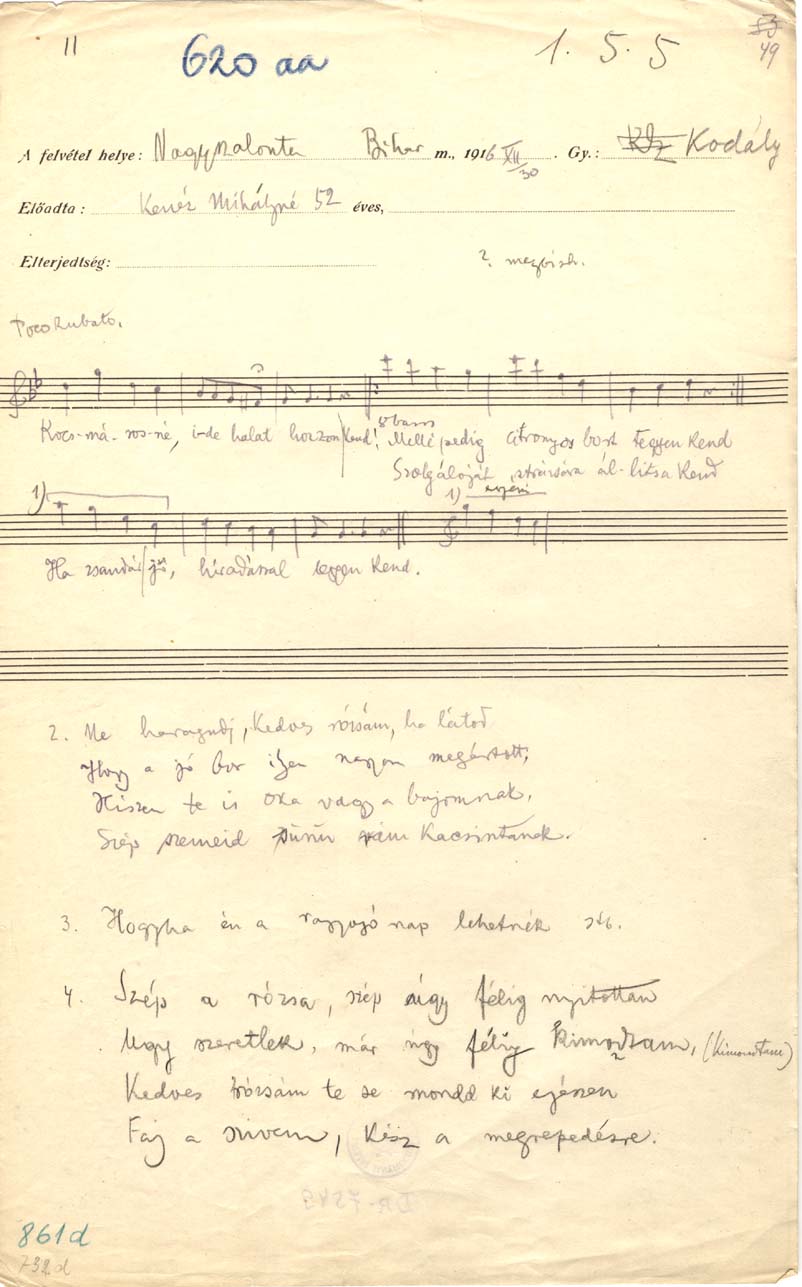 11
620 aa
1. 5. 5
53
49
A felvétel helye: Nagyszalonta Bihar m., 1916 XII/30. Gy.: Kodály
Előadta: Kenéz Mihályné 52 éves,
Elterjedtség:
2. megbízh.
Poco Rubato.
Kocs-má-ros-né, i-de halat hozzon Kend! Mellé pedig citromyos bort tegyen Kend
Szolgálóját strázsára ál-litsa Kend
1)
1)
Ha zsandár jö, híradással legyen Kend.
2. Ne haragudj, Kedves rózsám, ha látod
Hogy a jó bor ijen nagyon megártott,
Hiszen te is oka vagy a bajomnak,
Szép szemeid sürün rám Kacsintanak.
3. Hogyha én a ragyogó nap lehetnék stb.
4. Szép a rózsa, szép úgy félig nyitottan
Ugy szeretlek, már úgy félig kimodtam, (Kimondtam)
Kedves rózsám te se mondd ki egészen
Fáj a szivem, kész a megrepedésre.
DR-7543
861d
732.d